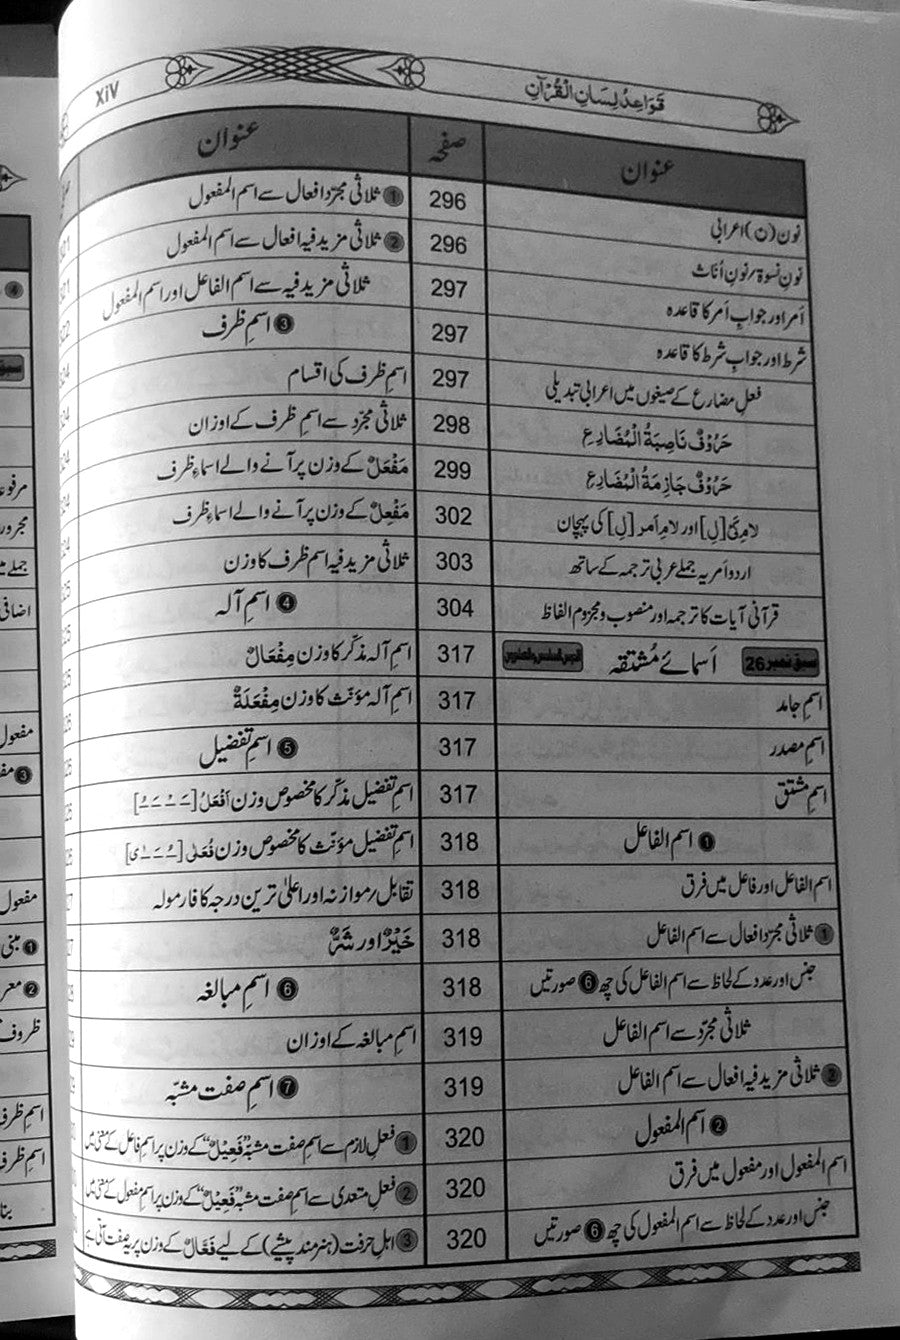 قَوَاعِدُ لِسَانِ الْقُرْآنِ
XiV
عنوان
صفحہ
عنوان
نون (ن) اعرابی
296
❶ ثلاثی مجرّد افعال سے اسم المفعول
نونِ نسوۃ/نونِ اُناث
296
❷ ثلاثی مزید فیہ افعال سے اسم المفعول
اَمر اور جوابِ اَمر کا قاعدہ
297
ثلاثی مزید فیہ سے اسم الفاعل اور اسم المفعول
شرط اور جوابِ شرط کا قاعدہ
297
❸ اسمِ ظرف
فعلِ مضارع کے صیغوں میں اعرابی تبدیلی
297
اسمِ ظرف کی اقسام
حَرُوْفٌ نَاصِبَةُ الْمُضَارِعِ
298
ثلاثی مجرّد سے اسمِ ظرف کے اوزان
حَرُوْفٌ جَازِمَةُ الْمُضَارِعِ
299
مَفْعَلٌ کے وزن پر آنے والے اسماءِ ظرف
لامِ کَیْ [لِ] اور لامِ اَمر [لِ] کی پہچان
302
مَفْعِلٌ کے وزن پر آنے والے اسماءِ ظرف
اردو اَمریہ جملے عربی ترجمہ کے ساتھ
303
ثلاثی مزید فیہ اسم ظرف کا وزن
قرآنی آیات کا ترجمہ اور منصوب و مجزوم الفاظ
304
❹ اسمِ آلہ
سبق نمبر 26
اَسمائے مُشتقہ
317
اسمِ آلہ مذکّر کا وزن مِفْعَالٌ
اسمِ جامد
317
اسمِ آلہ مؤنّث کا وزن مِفْعَلَةٌ
اسمِ مصدر
317
❺ اسمِ تفضیل
اسمِ مشتق
317
اسمِ تفضیل مذکّر کا مخصوص وزن اَفْعَلُ
❶ اسم الفاعل
318
اسمِ تفضیل مؤنّث کا مخصوص وزن فُعْلٰی
اسم الفاعل اور فاعل میں فرق
318
تقابل/موازنہ اور اعلیٰ ترین درجہ کا فارمولہ
❶ ثلاثی مجرّد افعال سے اسم الفاعل
318
خَيْرٌ اور شَرٌّ
جنس اور عدد کے لحاظ سے اسم الفاعل کی چھ ❻ صورتیں
318
❻ اسمِ مبالغہ
ثلاثی مجرّد سے اسم الفاعل
319
اسمِ مبالغہ کے اوزان
❷ ثلاثی مزید فیہ افعال سے اسم الفاعل
319
❼ اسمِ صفت مشبّہ
❷ اسم المفعول
320
❶ فعلِ لازم سے اسمِ صفت مشبّہ ”فَعِيْلٌ“ کے وزن پر اسمِ فاعل کے معنیٰ میں
اسم المفعول اور مفعول میں فرق
320
❷ فعلِ متعدی سے اسمِ صفت مشبّہ ”فَعِيْلٌ“ کے وزن پر اسمِ مفعول کے معنیٰ میں
جنس اور عدد کے لحاظ سے اسم المفعول کی چھ ❻ صورتیں
320
❸ اہلِ حرفت (ہنرمند پیشے) کے لیے فَعَّالٌ کے وزن پر یہ صفت آتی ہے